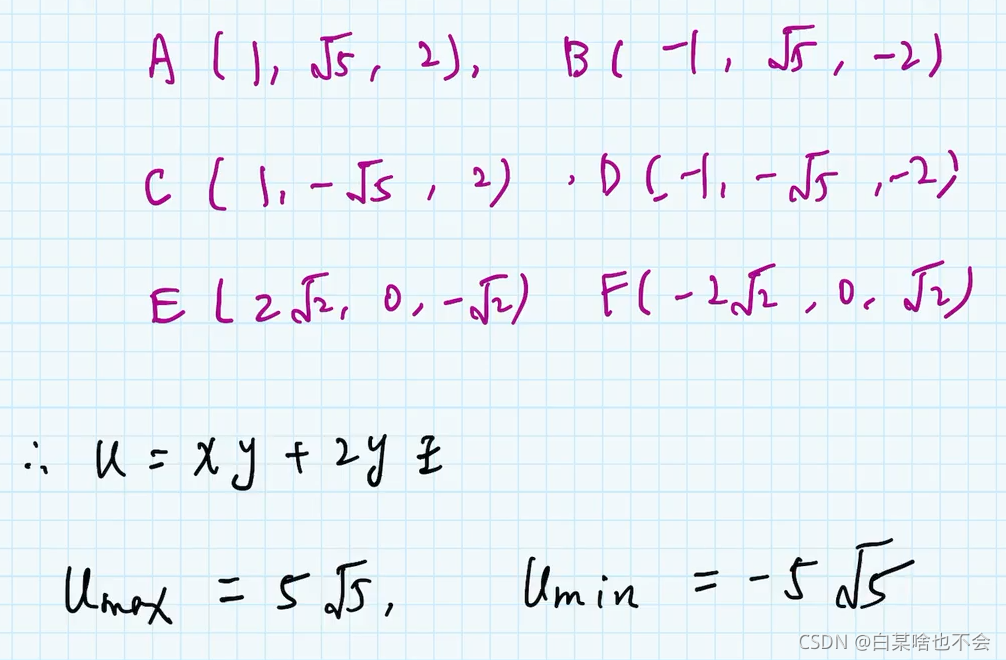 A (1, √5, 2), B (-1, √5, -2)
C (1, -√5, 2), D (-1, -√5, -2)
E (2√2, 0, -√2) F (-2√2, 0, √2)
∴ u = xy + 2yz
umax = 5√5, umin = -5√5
CSDN @白某啥也不会